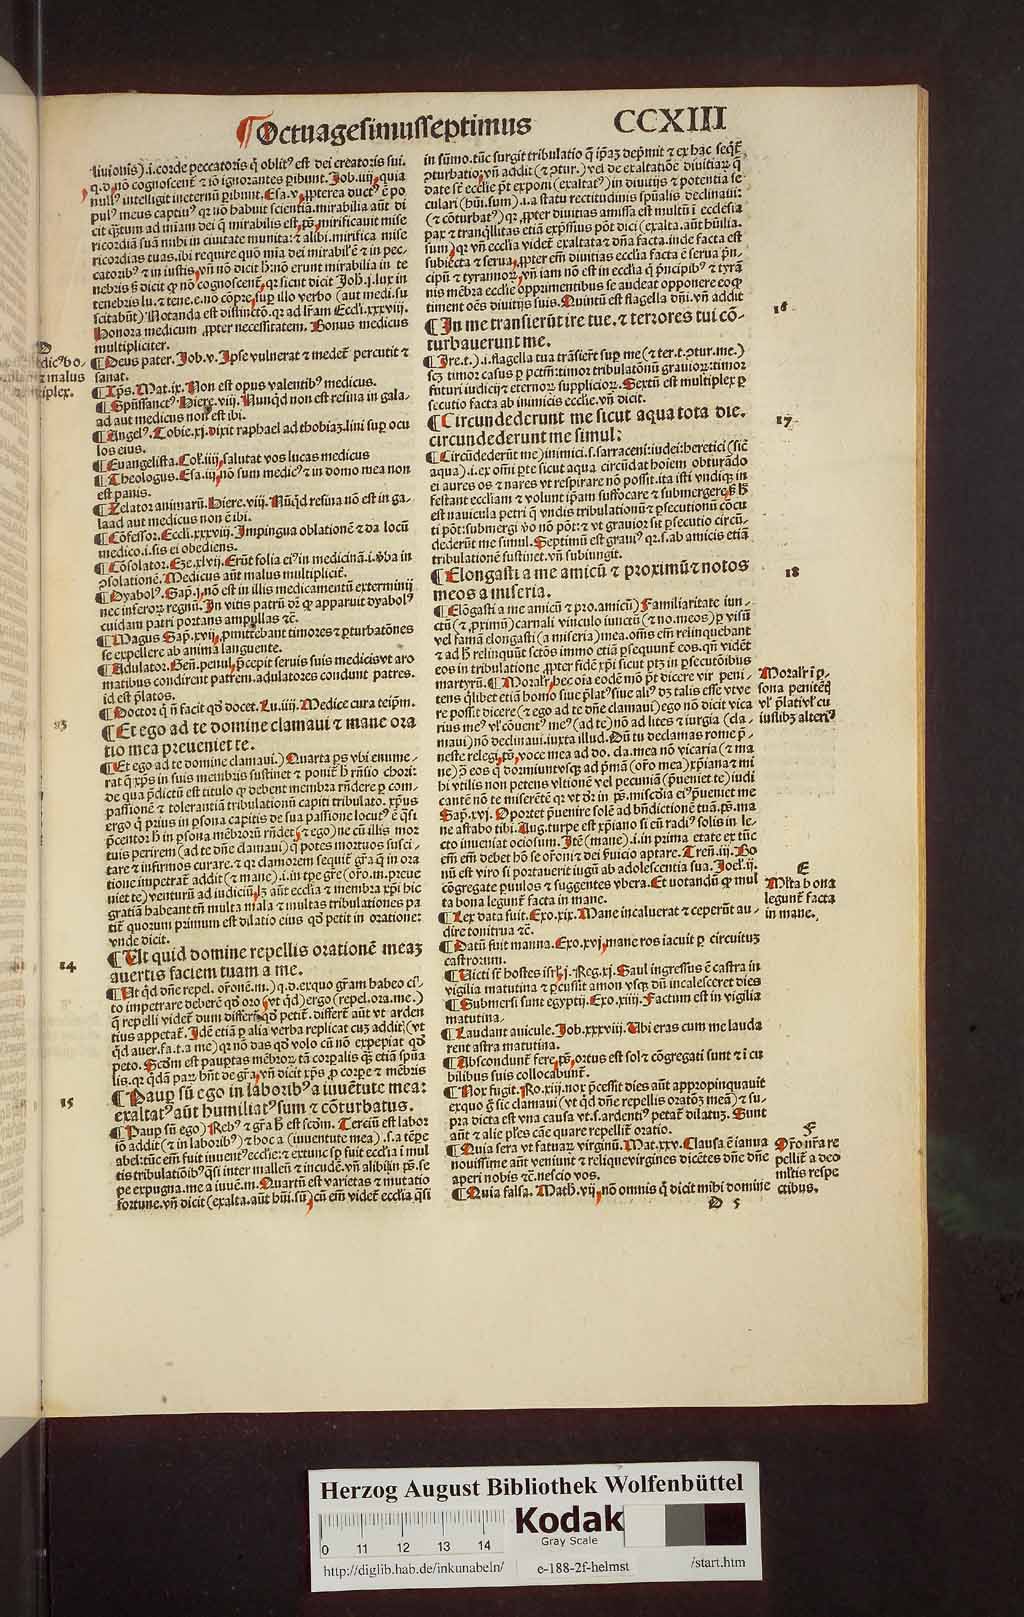 ¶Octuagesimusseptimus CCXIII
liuionis).i.corde peccatoris q̄ oblitꝰ est dei creatoris sui.
q.d.nō cognoscent̄ ⁊ iō ignorantes ꝑibunt. Job.iiij.quia
nullꝰ intelligit ineternū ꝑibunt. Esa.v.ꝓpterea ductꝰ ē po
pulꝰ meus captiuꝰ qꝛ nō habuit scientiā.mirabilia aūt di
ricordiā suā mihi in ciuitate munita:⁊ alibi.mirifica mise
ricordias tuas.ibi require quō mia dei mirabilꝰ ē ⁊ in pec-
catoribꝰ ⁊ in iustis,vn̄ nō dicit ħ:nō erunt mirabilia in te
nebris s̄ dicit ꝙ nō cognoscent̄,qꝛ sicut dicit Joh̄.j.lux in
tenebris lu.⁊ tene.e.nō cōpre,suꝑ illo verbo (aut medi.su
scitabūt) Notanda est distinctō.qꝛ ad lr̄am Eccl̄i.xxxviij.
Honora medicum ꝓpter necessitatem. Bonus medicus
multipliciter.
¶Deus pater. Job.v. Ipse vulnerat ⁊ medet̄ percutit ⁊
sanat.
¶Xp̄s. Mat.ix. Non est opus valentibꝰ medicus.
¶Sp̄ussanctꝰ. Hiere.viij. Nunqd non est resina in gala-
ad aut medicus non est ibi.
¶Angelꝰ. Tobie.xj. dixit raphael ad thobiaꝫ.lini suꝑ ocu
los eius.
¶Euangelista. Col̄.iiij.salutat vos lucas medicus
¶Theologus. Esa.iij.nō sum medicꝰ ⁊ in domo mea non
est panis.
¶Zelator animarū. Hiere.viij. Nūqd resina nō est in ga-
laad aut medicus non ē ibi.
¶Cōfessor. Eccl̄i.xxxviij. Impingua oblationē ⁊ da locū
medico.i.sis ei obediens.
¶Cōsolator. Eze.xlvij. Erūt folia eiꝰ in medicinā.i.v̄ba in
ꝯsolationē. Medicus aūt malus multiplicit̄.
¶Dyabolꝰ. Sap.j.nō est in illis medicamentū exterminij
nec inferoꝝ regnū. In vitis patrū dr̄ ꝙ apparuit dyabolꝰ
cuidam patri portans ampullas ⁊c̄.
¶Magus Sap.xvij.ꝓmittebant timores ⁊ ꝑturbatōnes
se expellere ab anima languente.
¶Adulator. Gen̄.penul.p̄cepit seruis suis medicis vt aro
matibus condirent patrem.adulatores condunt patres.
id est p̄latos.
¶Doctor q̄ n̄ facit qd docet. Lu.iiij. Medice cura teip̄m.
¶Et ego ad te domine clamaui ⁊ mane ora
tio mea preueniet te.
¶Et ego ad te domine clamaui.) Quarta ps vbi enume-
rat q̄ xp̄s in suis membris sustinet ⁊ ponit̄ ħ rn̄sio chori:
de qua p̄dictū est titulo ꝙ debent membra rn̄dere ꝑ com-
passionē ⁊ tolerantiā tribulationū capiti tribulato. xp̄us
ergo q̄ prius in ꝑsona capitis de sua passione locutꝰ ē q̄si
p̄centor ħ in ꝑsona mēbroꝝ rn̄det,(⁊ ego) ne cū illis mor
tuis perirem (ad te dn̄e clamaui) q̄ potes mortuos susci-
tare ⁊ infirmos curare. ⁊ qꝛ clamorem sequit̄ gr̄a q̄ in ora
tione impetrat̄ addit (⁊ mane).i.in tp̄e gr̄e (or̄o.m.preue
niet te) venturū ad iudiciū,lꝫ aūt eccl̄ia ⁊ membra xp̄i hic
gratiā habeant tn̄ multa mala ⁊ multas tribulationes pa
tit̄ quorum primum est dilatio eius qd petit in oratione:
vnde dicit.
¶Ut quid domine repellis orationē meaꝫ
auertis faciem tuam a me.
¶Ut qd dn̄e repel. or̄onē.m.) q.d.exquo gr̄am habeo ci-
to impetrare deberē qd oro (vt qd) ergo (repel.ora.me.)
q̄ repelli videt̄ dum differt̄ qd petit̄. differt̄ aūt vt arden
tius appetat̄. Idē etiā ꝑ alia verba replicat cuꝫ addit (vt
qd auer.fa.t.a me) qꝛ nō das qd volo cū nō expediat qd
peto. Scd̄m est pauꝑtas mēbroꝝ tā corpalis q̄ etiā sp̄ua
lis.qꝛ qdā parꝫ hn̄t de gr̄a,vn̄ dicit xp̄s ꝓ corpe ⁊ mēbris
¶Pauꝑ sū ego in laboribꝰ a iuuētute mea:
exaltatꝰ aūt humiliatꝰ sum ⁊ cōturbatus.
¶Pauꝑ sū ego) Rebꝰ ⁊ gr̄a ħ est scd̄m. Terciū est labor
iō addit (⁊ in laboribꝰ) ⁊ hoc a (iuuentute mea).s.a tēpe
abel:tūc em̄ fuit iuuentꝰ eccl̄ie:⁊ extunc sꝑ fuit eccl̄ia ī mul
tis tribulatiōibꝰ q̄si inter malleū ⁊ incudē.vn̄ alibi in ps̄.se
pe expugna.me a iuuē.m. Quartū est varietas ⁊ mutatio
fortune.vn̄ dicit (exalta.aūt hūi.sū) cū em̄ videt̄ eccl̄ia q̄si
in sūmo.tūc surgit tribulatio q̄ ip̄aꝫ dep̄mit ⁊ ex hac seqt̄
ꝯturbatio,vn̄ addit (⁊ ꝯtur.) vel de exaltatiōe diuitiaꝝ q̄
date st̄ eccl̄ie pt̄ exponi (exaltatꝰ) in diuitijs ⁊ potentia se
culari (hūi.sum).i.a statu rectitudinis sp̄ualis declinaui:
(⁊ cōturbatꝰ) qꝛ ꝓpter diuitias amissa est multū ī ecclesia
pax ⁊ tranqllitas etiā exp̄ssius pōt dici (exalta.aūt hūilia.
sum) qꝛ vn̄ eccl̄ia videt̄ exaltata ⁊ dn̄a facta.inde facta est
subiecta ⁊ serua,ꝓpter em̄ diuitias eccl̄ia facta ē serua p̄n-
cipū ⁊ tyrannoꝝ,vn̄ iam nō est in eccl̄ia q̄ p̄ncipibꝰ ⁊ tyrā
nis mēbra eccl̄ie opprimentibus se audeat opponere eoꝙ
timent oēs diuitijs suis. Quintū est flagella dn̄i.vn̄ addit
¶In me transierūt ire tue. ⁊ terrores tui cō-
turbauerunt me.
¶Ire.t.).i.flagella tua trāsier̄t suꝑ me (⁊ ter.t.ꝯtur.me.)
scꝫ timor casus ꝑ pctm̄:timor tribulatōnū grauioꝝ:timor
futuri iudicij ⁊ eternoꝝ supplicioꝝ. Sextū est multiplex ꝑ
secutio facta ab inimicis eccl̄ie.vn̄ dicit.
¶Circundederunt me sicut aqua tota die.
circundederunt me simul:
¶Circūdederūt me) inimici.s.sarraceni:iudei:heretici (sic̄
aqua).i.ex om̄i pte sicut aqua circūdat hoiem obturādo
ei aures os ⁊ nares vt respirare nō possit.ita isti vndiqꝫ in
festant eccl̄iam ⁊ volunt ip̄am suffocare ⁊ submergere,s̄ ħ
est nauicula petri q̄ vndis tribulationū ⁊ ꝑsecutionū cōcu
ti pōt:submergi v̄o nō pōt:⁊ vt grauior sit ꝑsecutio circū-
dederūt me simul. Septimū est grauiꝰ qꝛ.s.ab amicis etiā
tribulationē sustinet.vn̄ subiungit.
¶Elongasti a me amicū ⁊ proximū ⁊ notos
meos a miseria.
¶Elōgasti a me amicū ⁊ pro.amicū) Familiaritate iun-
ctū (⁊ ꝓximū) carnali vinculo iunctū (⁊ no.meos) ꝑ visū
vel famā elongasti (a miseria) mea.om̄s em̄ relinquebant
⁊ ad ħ relinquūt sctōs immo etiā ꝑsequunt̄ eos.qn̄ vidēt
eos in tribulatione ꝓpter fidē xp̄i sicut ptꝫ in ꝑsecutōibus
martyrū. ¶Moral̄r,hec oīa eodē mō pt̄ dicere vir peni-
tens q̄libet etiā homo siue p̄latꝰ siue aliꝰ dꝫ talis esse vt ve
re possit dicere (⁊ ego ad te dn̄e clamaui) ego nō dicit vica
rius meꝰ vl̄ cōuentꝰ meꝰ (ad te) nō ad lites ⁊ iurgia (cla-
maui) nō declinaui.iuxta illud. Dū tu declamas rome p̄-
neste relegi,tn̄,voce mea ad do.cla.mea nō vicaria (⁊ ma
ne) p̄ eos q̄ dormiunt vsqꝫ ad p̄mā (or̄o mea) xp̄iana ⁊ mi
hi vtilis non petens vltionē vel pecuniā (p̄ueniet te) iudi
cantē nō te miserētē qꝛ vt dr̄ in ps̄.miscd̄ia eiꝰ p̄ueniet me
Sap.xvj. Oportet p̄uenire solē ad bn̄dictionē tuā.ps̄.ma
ne astabo tibi. Aug.turpe est xp̄iano si eū radiꝰ solis in le-
cto inueniat ociosum. Itē (mane).i.in prima etate ex tūc
em̄ debet hō se or̄oni ⁊ dei s̄uicio aptare. Tren̄.iij. Bo
nū est viro si portauerit iugū ab adolescentia sua. Joel̄.ij.
cōgregate puulos ⁊ suggentes vbera. Et notandū ꝙ mul
ta bona legunt̄ facta in mane.
¶Lex data fuit. Exo.xix. Mane incaluerat ⁊ ceperūt au-
dire tonitrua ⁊c̄.
¶Datū fuit manna. Exo.xvj.mane ros iacuit ꝑ circuituꝫ
castrorum.
¶Uicti st̄ hostes isrl̄.j.Reg.xj. Saul ingressus ē castra in
vigilia matutina ⁊ ꝑcussit amon vsqꝫ dū incalesceret dies
¶Submersi sunt egyptij. Exo.xiiij. Factum est in vigilia
matutina.
¶Laudant auicule. Job.xxxviij. Ubi eras cum me lauda
rent astra matutina.
¶Abscondunt̄ fere,ps̄.ortus est sol ⁊ cōgregati sunt ⁊ ī cu
bilibus suis collocabunt̄.
¶Nox fugit. Ro.xiij.nox p̄cessit dies aūt appropinquauit
exquo ḡ sic clamaui (vt qd dn̄e repellis oratōꝫ meā) ⁊ su-
pra dicta est vna causa vt.s.ardentiꝰ petat̄ dilatuꝫ. Sunt
aūt ⁊ alie pl̄es cāe quare repellit̄ oratio.
¶Quia sera vt fatuaꝝ virginū. Mat.xxv. Clausa ē ianua
nouissime aūt veniunt ⁊ relique virgines dicētes dn̄e dn̄e
aperi nobis ⁊c̄.nescio vos.
¶Quia falsa. Math̄.vij.nō omnis q̄ dicit mihi domine
D 5
D
dicꝰ bo-
⁊ malus
tiplex.
93
14
15
16
17
18
Moral̄r ī ꝑ-
sona penitētꝭ
vl̄ p̄lati vl̄ cu
iuslibꝫ alteriꝰ
E
Ml̄ta bona
legunt̄ facta
in mane.
F
Or̄o nr̄a re
pellit̄ a deo
ml̄tis respe
ctibus.
Herzog August Bibliothek Wolfenbüttel
0 11 12 13 14
Kodak
Gray Scale
http://diglib.hab.de/inkunabeln/ e-188-2f-helmst /start.htm